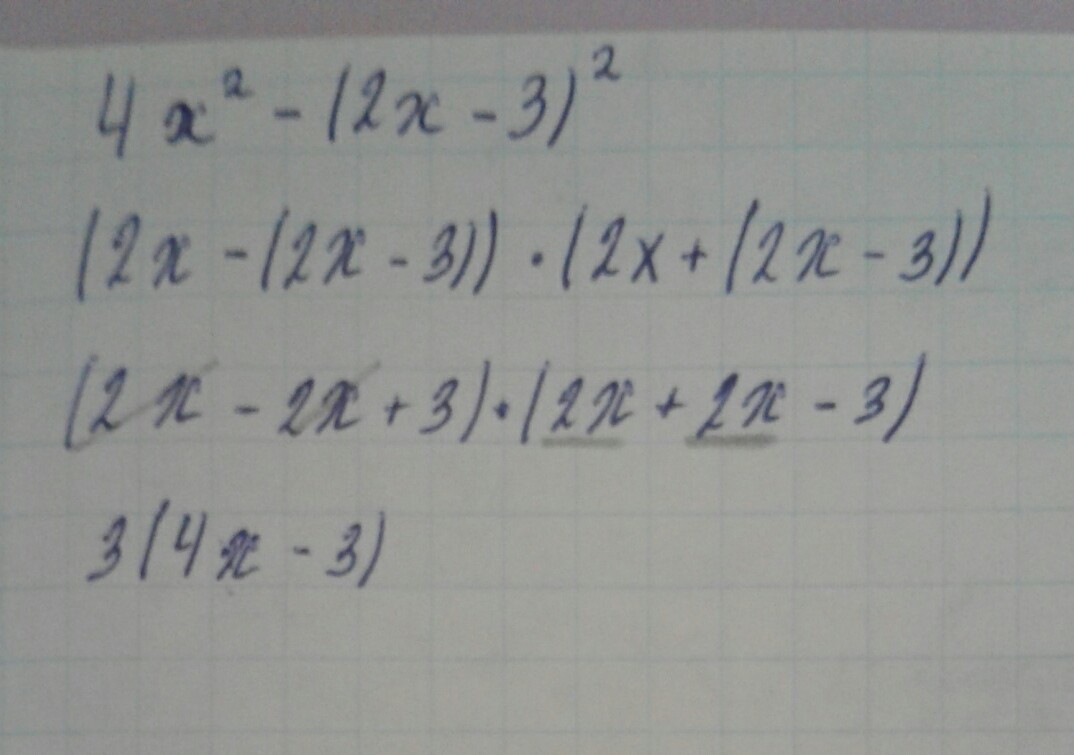 4x² - (2x - 3)²
(2x - (2x - 3)) · (2x + (2x - 3))
(2x - 2x + 3) · (2x + 2x - 3)
3(4x - 3)